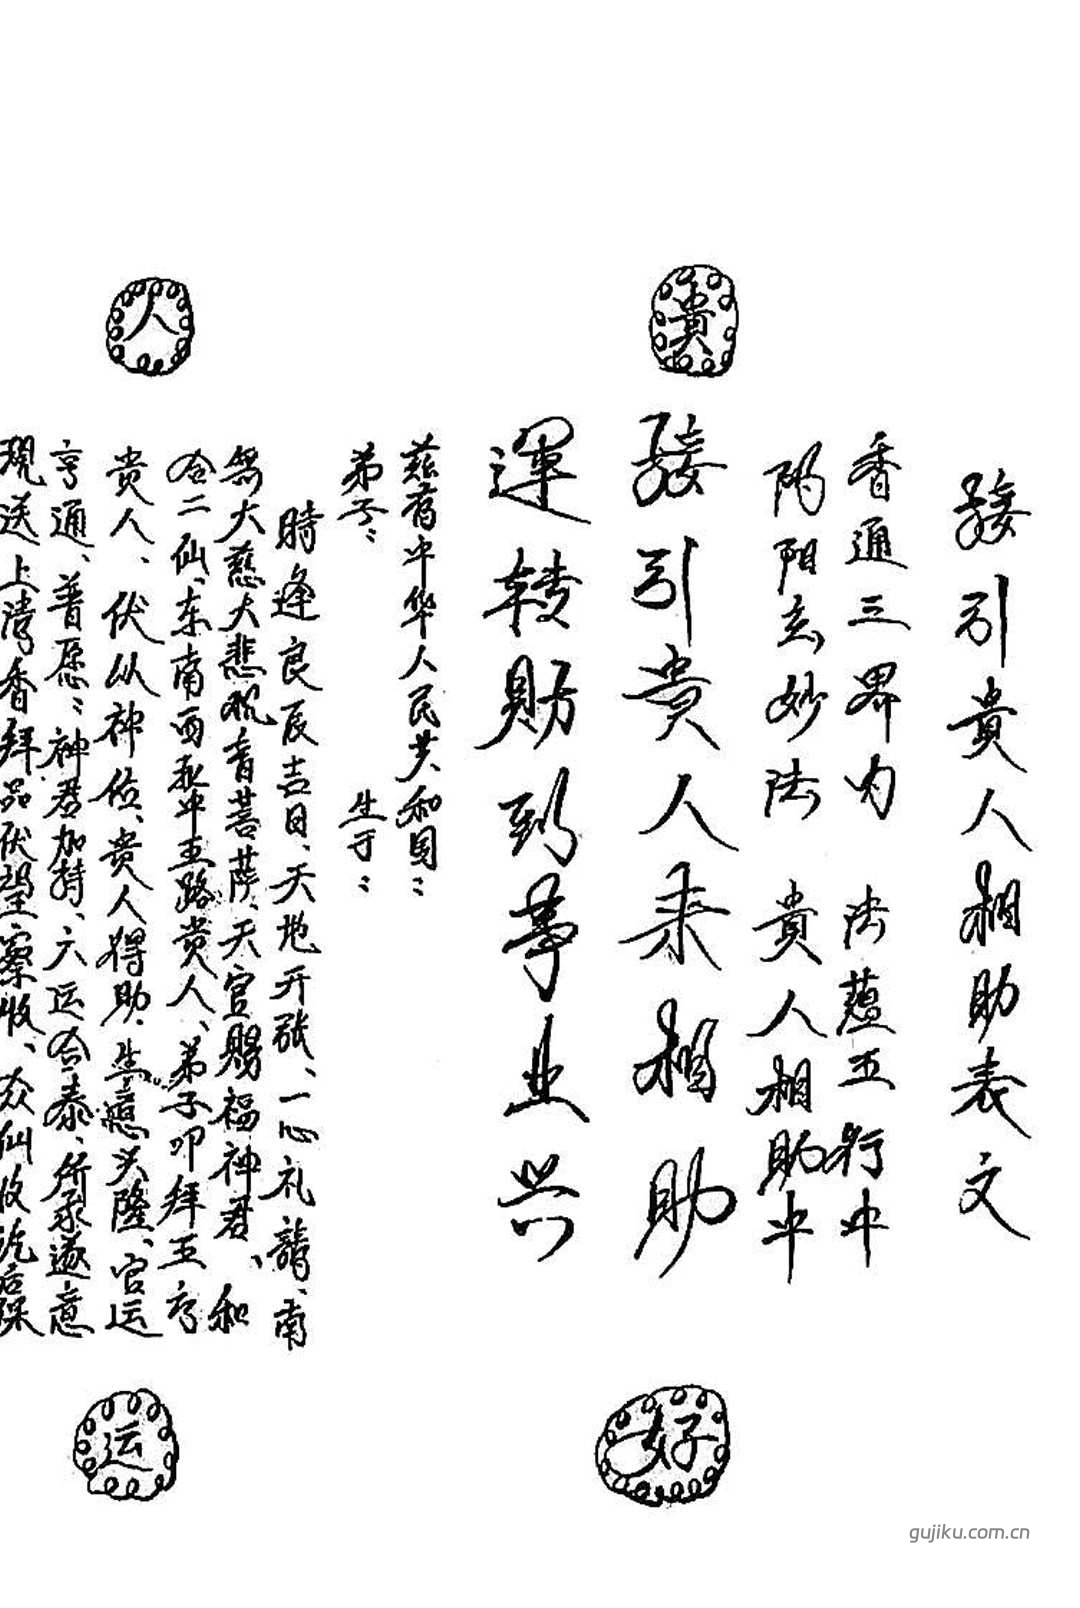 接引貴人相助表文
香通三界内 法蘊五行中
阴阳玄妙法 貴人相助中
貴
接引貴人来相助
好
運转财到事业兴
兹有中华人民共和国：
弟子： 生于：
時逢良辰吉日、天地开张、一心礼請、南
無大慈大悲观音菩萨、天官赐福神君、和
合二仙、东南西北中五路贵人、弟子叩拜五方
贵人、伏以神位、贵人得助、生意兴隆、官运
亨通、普愿：神君加持、六运合泰、所求遂意
現送上清香拜品伏望察收、众仙收讫后保
人
运
gujiku.com.cn